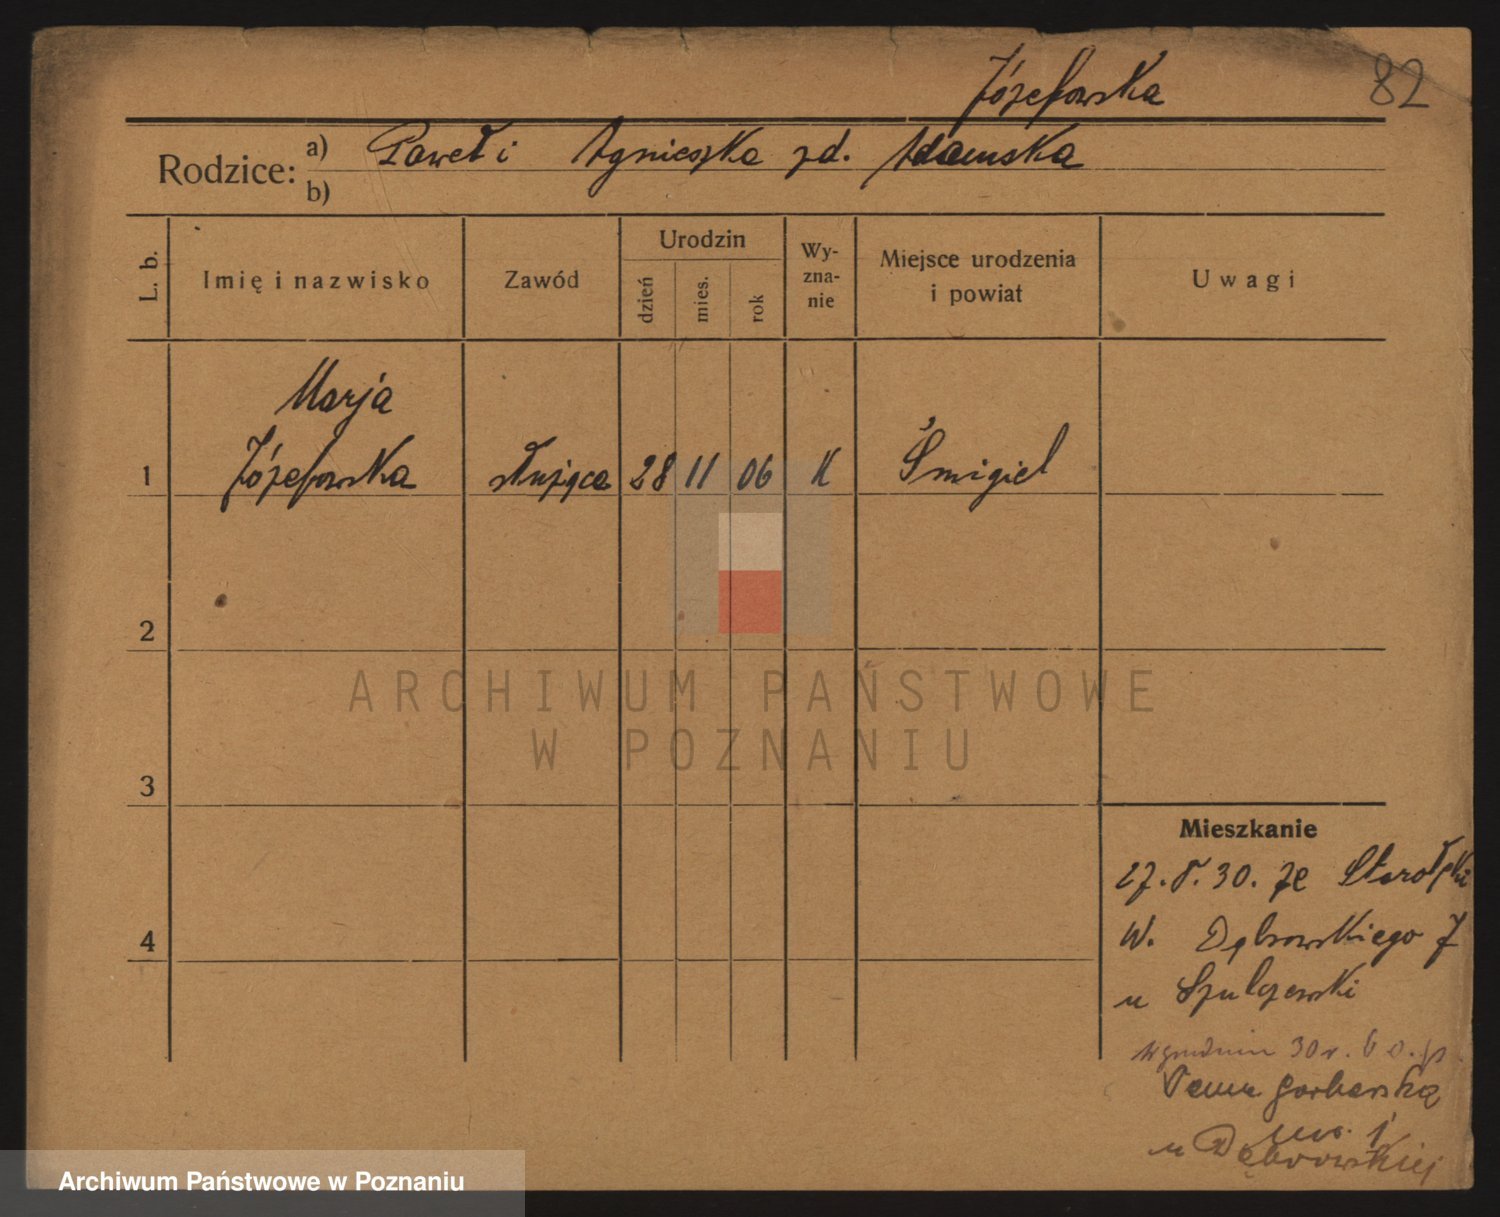 Józefowska
82
Rodzice: a) Paweł i Agnieszka zd. Adamska
b)
L. b.
Imię i nazwisko
Zawód
Urodzin
dzień
mies.
rok
Wy-
zna-
nie
Miejsce urodzenia
i powiat
Uwagi
Marja
1 Józefowska służąca 28 11 06 K Śmigiel
2
3
4
ARCHIWUM PAŃSTWOWE
W POZNANIU
Mieszkanie
27.8.30. ze
W. Dąbrowskiego 7
u Szulczewski
w grudniu 30 r.
Garbarską
no. 1
u Dąbrowskiej
Archiwum Państwowe w Poznaniu